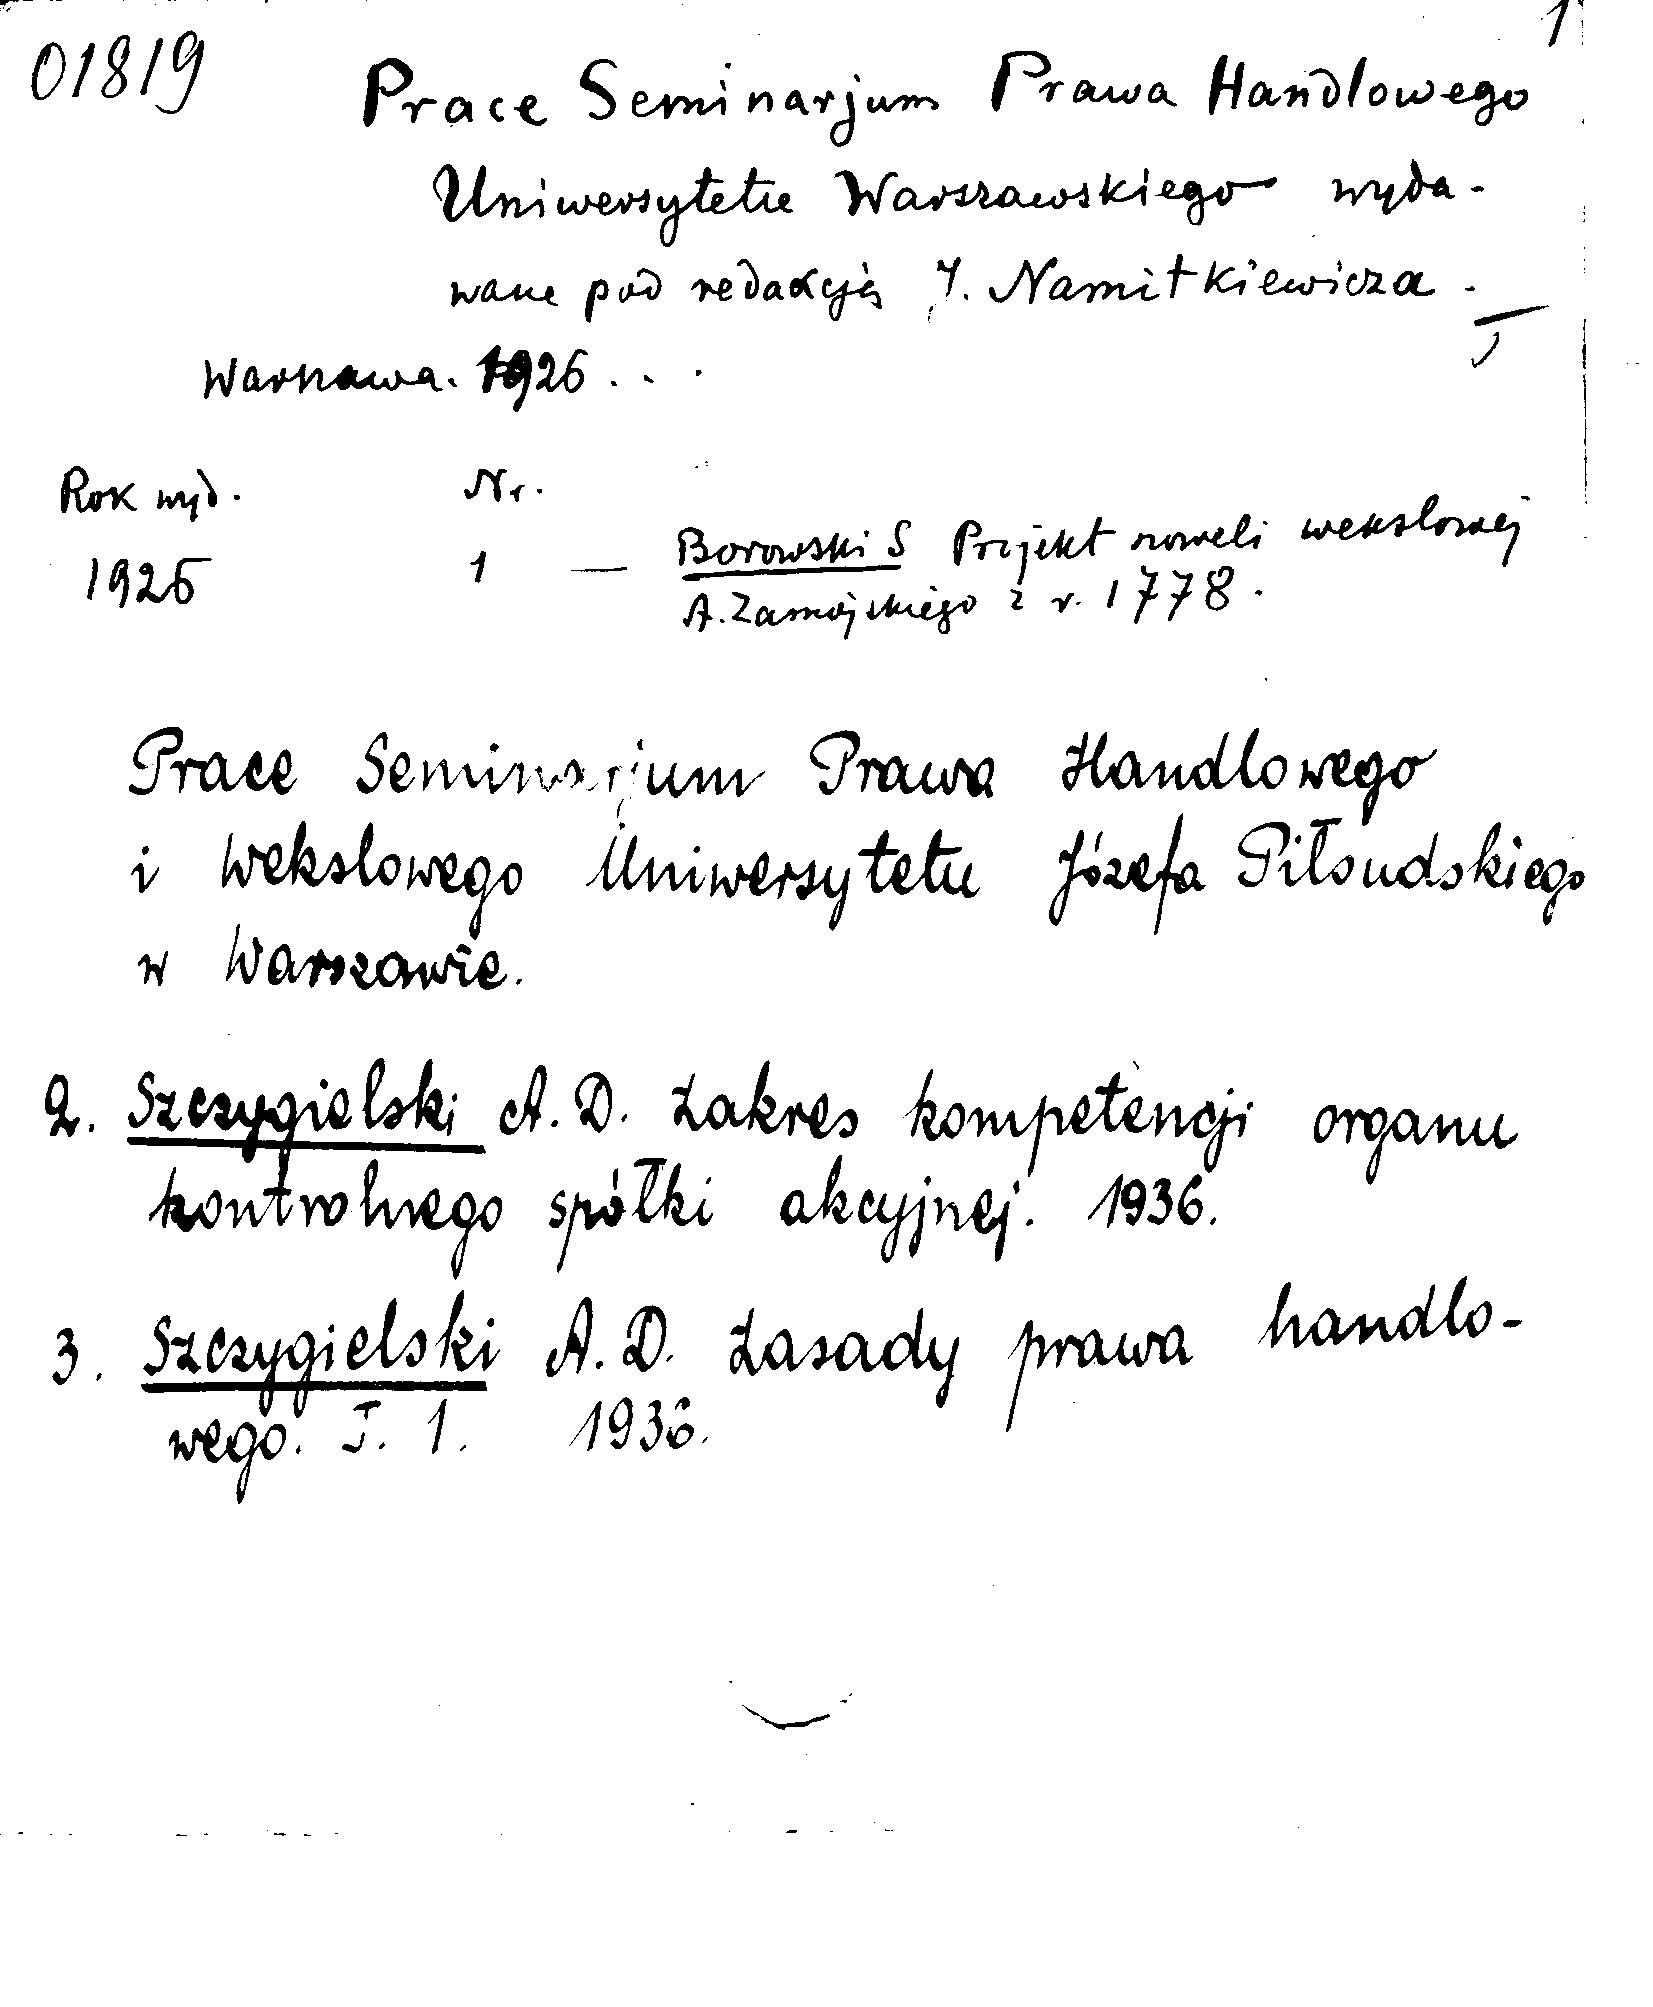 1
01819
Prace Seminarjum Prawa Handlowego
Uniwersytetu Warszawskiego wyda-
wane pod redakcją J. Namitkiewicza.
Warszawa. 1926 . . .
Rok wyd. Nr.
1926 1 — Borowski S Projekt noweli wekslowej
A. Zamojskiego z r. 1778.
Prace Seminarjum Prawa Handlowego
i Wekslowego Uniwersytetu Józefa Piłsudskiego
w Warszawie.
2. Szczygielski A. D. Zakres kompetencji organu
kontrolnego spółki akcyjnej. 1936.
3. Szczygielski A. D. Zasady prawa handlo-
wego. T. 1. 1936.